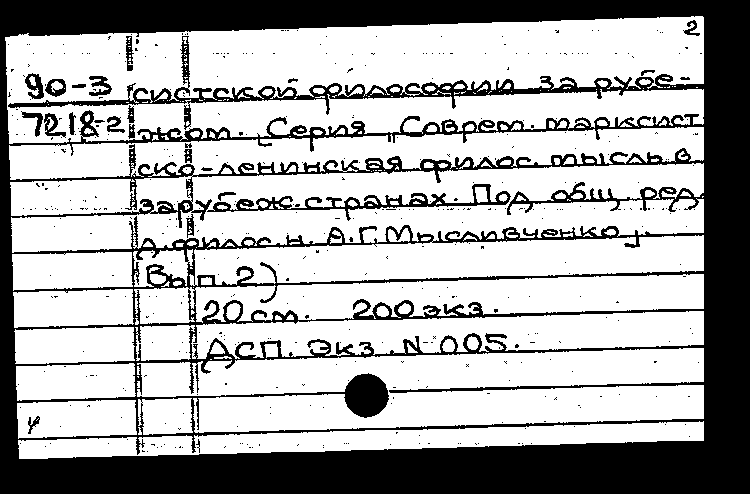 2
90-3 систской философии за рубе-
7218-2 жом. [Серия „Соврем. марксист
ско-ленинская филос. мысль в
зарубеж. странах. Под общ. ред.
д. филос. н. А.Г. Мысливченко].
Вып. 2).
20 см. 200 экз.
ДСП. Экз. N 005.